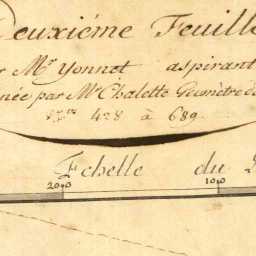 Deuxiéme Feuille
Mr. Yonnet aspirant
née par Mr. Chalette Géométre de
428 à 689.
Echelle du
200 100